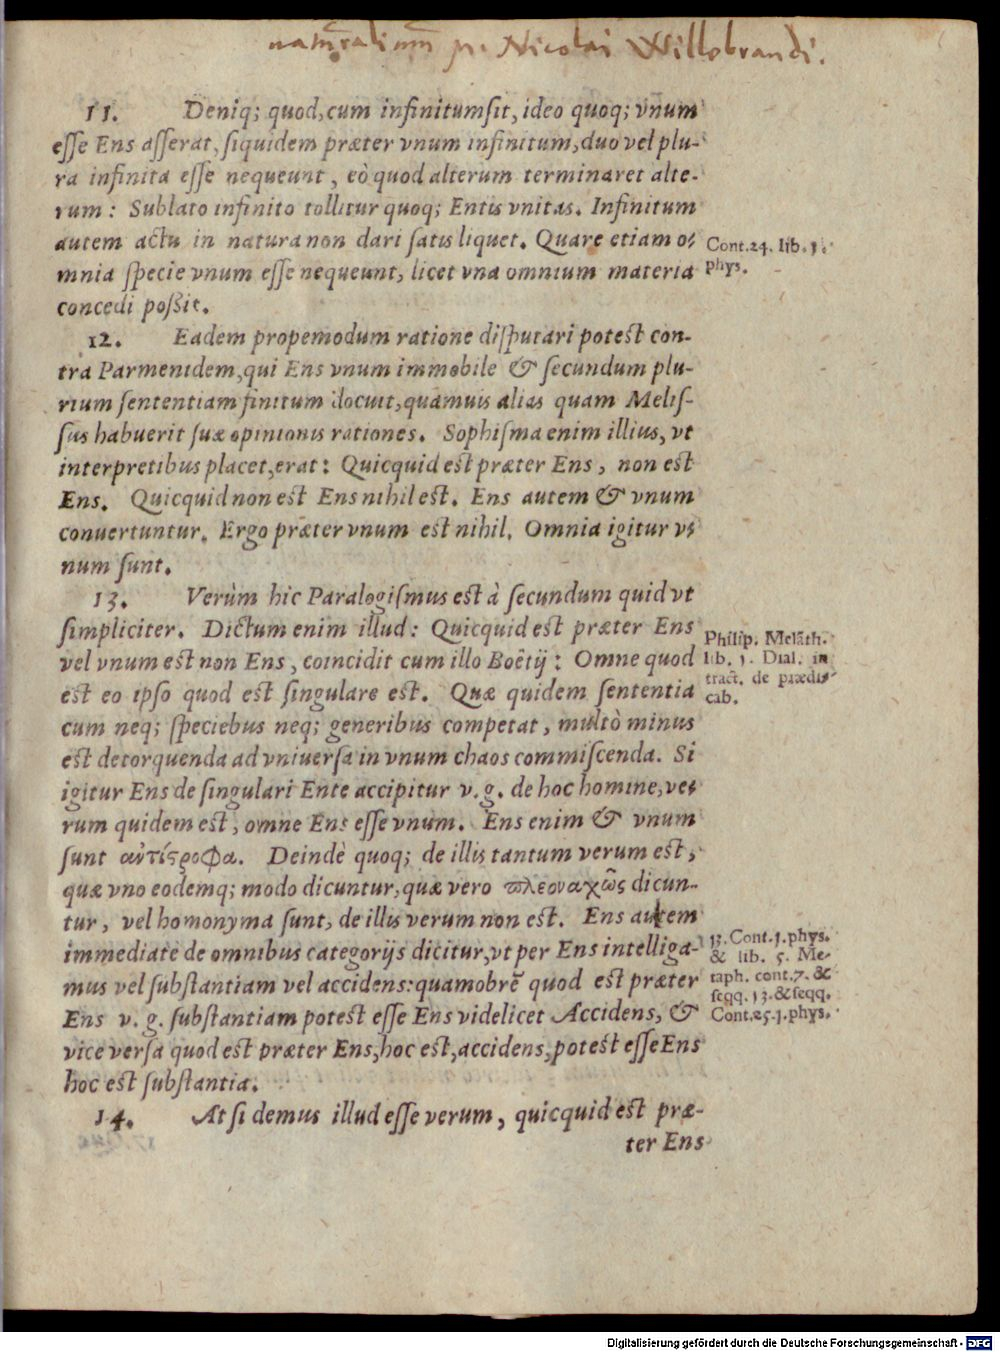 naturalium p. Nicolai Willebrandi.
11. Deniq; quod, cum infinitum sit, ideo quoq; vnum
esse Ens asserat, siquidem præter vnum infinitum, duo vel plu-
ra infinita esse nequeunt, eò quod alterum terminaret alte-
rum: Sublato infinito tollitur quoq; Entis vnitas. Infinitum
autem actu in natura non dari satis liquet. Quare etiam o-
mnia specie vnum esse nequeunt, licet vna omnium materia
concedi poßit.
Cont. 24. lib. 1.
phys.
12. Eadem propemodum ratione disputari potest con-
tra Parmenidem, qui Ens vnum immobile & secundum plu-
rium sententiam finitum docuit, quamuis alias quam Melis-
sus habuerit suæ opinionis rationes. Sophisma enim illius, vt
interpretibus placet, erat: Quicquid est præter Ens, non est
Ens. Quicquid non est Ens nihil est. Ens autem & vnum
conuertuntur. Ergo præter vnum est nihil. Omnia igitur v-
num sunt.
13. Verùm hic Paralogismus est à secundum quid vt
simpliciter. Dictum enim illud: Quicquid est præter Ens
vel vnum est non Ens, coincidit cum illo Boëtij: Omne quod
est eo ipso quod est singulare est. Quæ quidem sententia
cum neq; speciebus neq; generibus competat, multò minus
est detorquenda ad vniuersa in vnum chaos commiscenda. Si
igitur Ens de singulari Ente accipitur v. g. de hoc homine, ve-
rum quidem est, omne Ens esse vnum. Ens enim & vnum
sunt αντίςροφα. Deindè quoq; de illis tantum verum est,
quæ vno eodemq; modo dicuntur, quæ vero πλεοναχῶς dicun-
tur, vel homonyma sunt, de illis verum non est. Ens autem
immediate de omnibus categorijs dicitur, vt per Ens intelliga-
mus vel substantiam vel accidens: quamobrẽ quod est præter
Ens v. g. substantiam potest esse Ens videlicet Accidens, &
vice versa quod est præter Ens, hoc est, accidens, potest esse Ens
hoc est substantia.
Philip. Melãth.
lib. 1. Dial. in
tract. de prædi-
cab.
13. Cont. 1. phys.
& lib. 5. Me-
taph. cont. 7. &
seqq. 13. & seqq.
Cont. 25. 1. phys.
14. At si demus illud esse verum, quicquid est præ-
ter Ens
Digitalisierung gefördert durch die Deutsche Forschungsgemeinschaft - DFG